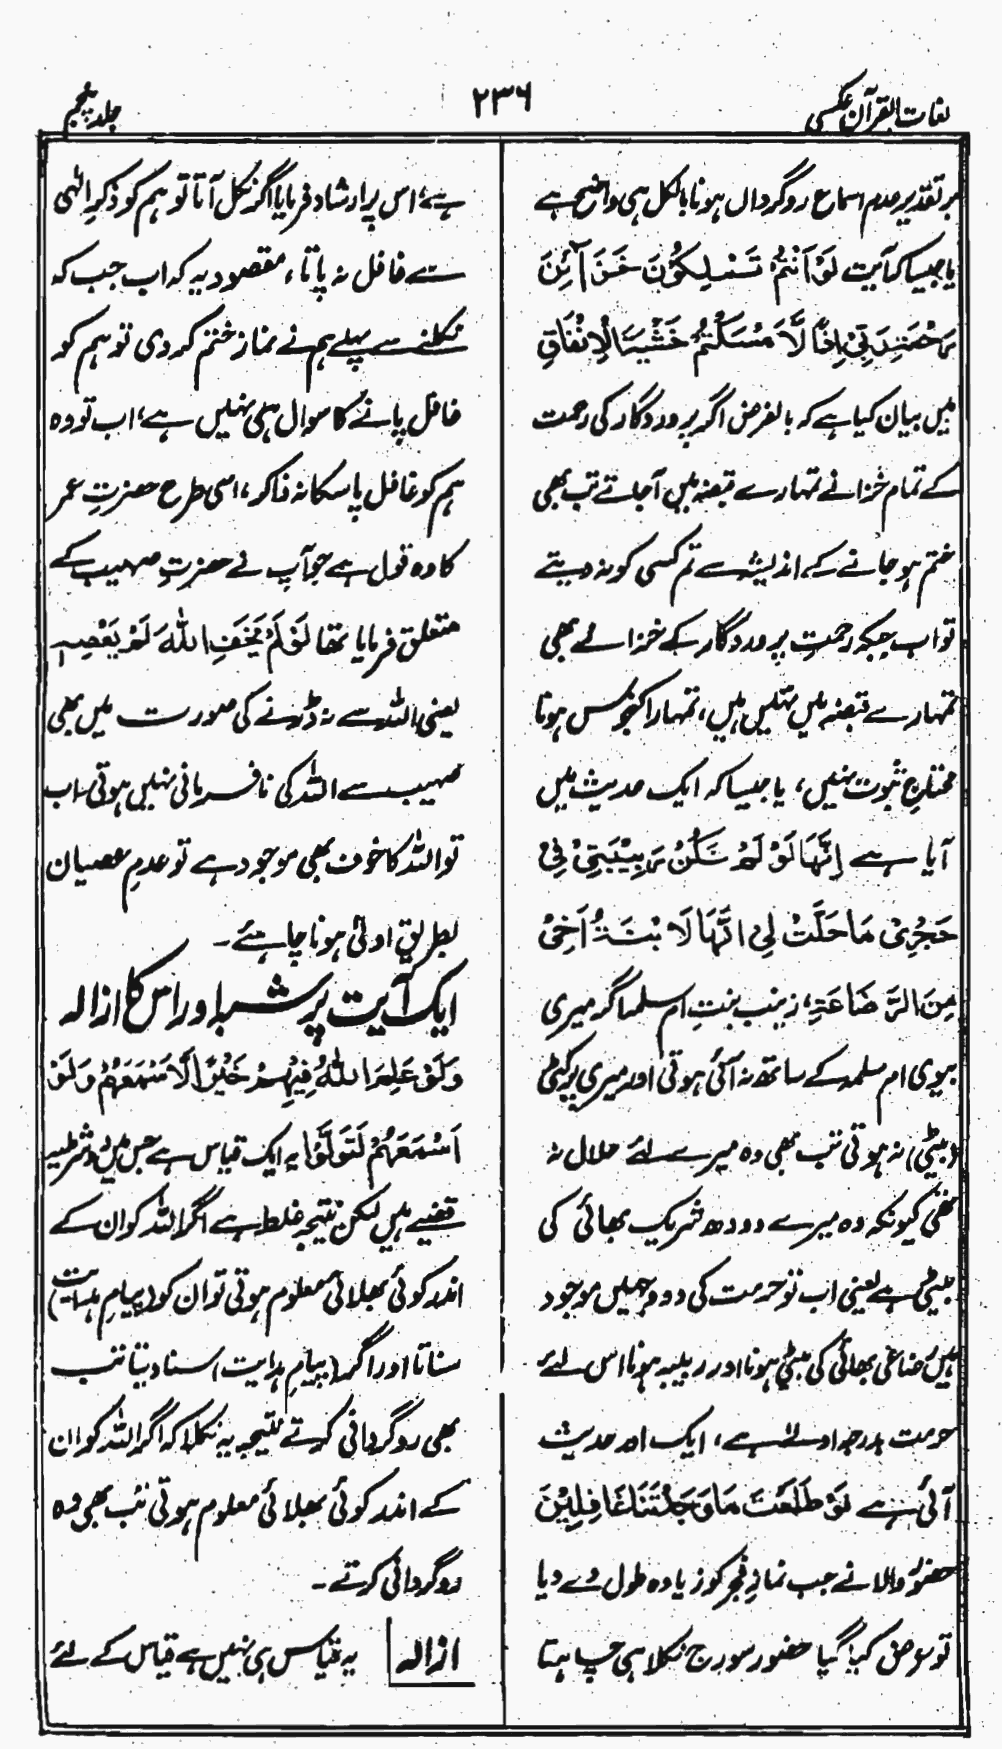 لغات القرآن عکسی
۲۳۶
جلد پنجم
بر تقدیر عدم اسماع روگرداں ہونا بالکل ہی واضح ہے
یا جیسا کہ آیت لَوْ اَنْتُمْ تَمْلِكُوْنَ خَزَآئِنَ
رَحْمَةِ رَبِّیْ اِذًا لَّاَمْسَكْتُمْ خَشْيَةَ الْاِنْفَاقِ
میں بیان کیا ہے کہ بالفرض اگر پروردگار کی رحمت
کے تمام خزانے تمہارے قبضہ میں آجاتے تب بھی
ختم ہو جانے کے اندیشہ سے تم کسی کو نہ دیتے
تو اب جبکہ رحمتِ پروردگار کے خزانے بھی
تمہارے قبضہ میں نہیں ہیں، تمہارا کنجوس ہونا
محتاجِ ثبوت نہیں، یا جیسا کہ ایک حدیث میں
آیا ہے اِنَّهَا لَوْ لَمْ تَكُنْ رَبِيْبَتِیْ فِیْ
حَجْرِیْ مَا حَلَّتْ لِیْ اِنَّهَا لَابْنَةُ اَخِیْ
مِنَ الرَّضَاعَةِ، زینب بنتِ ام سلمہ اگر میری
بیوی ام سلمہ کے ساتھ نہ آئی ہوتی اور میری پرکٹی
(بیٹی) نہ ہوتی تب بھی وہ میرے لئے حلال نہ
تھی کیونکہ وہ میرے دودھ شریک بھائی کی
بیٹی ہے یعنی اب تو حرمت کی دو وجہیں موجود
ہیں رضاعی بھائی کی بیٹی ہونا اور ربیبہ ہونا اس لئے
حرمت بدرجہ اولےٰ ہے، ایک اور حدیث
آئی ہے لَوْ طَلَعَتْ مَا وَجَدَتْنَا غَافِلِيْنَ
حضورِ والا نے جب نمازِ فجر کو زیادہ طول دے دیا
تو عرض کیا گیا حضور سورج نکلا ہی چاہتا
ہے، اس پر ارشاد فرمایا اگر نکل آتا تو ہم کو ذکرِ الٰہی
سے غافل نہ پاتا، مقصود یہ کہ اب جب کہ
نکلنے سے پہلے ہم نے نماز ختم کر دی تو ہم کو
غافل پانے کا سوال ہی نہیں ہے، اب تو وہ
ہم کو غافل پا سکا نہ ذاکر، اسی طرح حضرتِ عمر
کا وہ قول ہے جو آپ نے حضرتِ صہیب کے
متعلق فرمایا تھا لَوْ لَمْ يَخَفِ اللّٰهَ لَمْ يَعْصِهٖ
یعنی اللہ سے نہ ڈرنے کی صورت میں بھی
صہیب سے اللہ کی نافرمانی نہیں ہوتی۔ اب
تو اللہ کا خوف بھی موجود ہے تو عدمِ عصیان
بطریقِ اولیٰ ہونا چاہئے۔
ایک آیت پر شبہ اور اس کا ازالہ
وَلَوْ عَلِمَ اللّٰهُ فِيْهِمْ خَيْرًا لَّاَسْمَعَهُمْ وَلَوْ
اَسْمَعَهُمْ لَتَوَلَّوْا یہ ایک قیاس ہے جس میں دو شرطیہ
قضیے ہیں لیکن نتیجہ غلط ہے اگر اللہ کو ان کے
اندر کوئی بھلائی معلوم ہوتی تو ان کو (پیامِ ہدایت)
سناتا اور اگر (پیامِ ہدایت) سنا دیتا تب
بھی روگردانی کرتے نتیجہ یہ نکلا کہ اگر اللہ کو ان
کے اندر کوئی بھلائی معلوم ہوتی تب بھی وہ
روگردانی کرتے۔
ازالہ یہ قیاس ہی نہیں ہے قیاس کے لئے